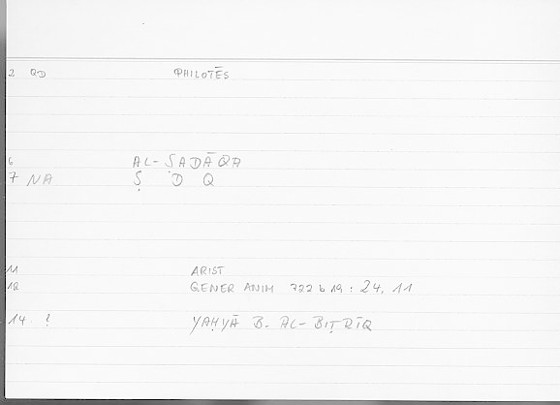 2 QD PHILOTĒS
6 AL-ṢADĀQA
7 NA Ṣ D Q
11 ARIST
12 GENER ANIM 722 b 19 : 24, 11
14 ! YAḤYĀ B. AL-BIṬRĪQ